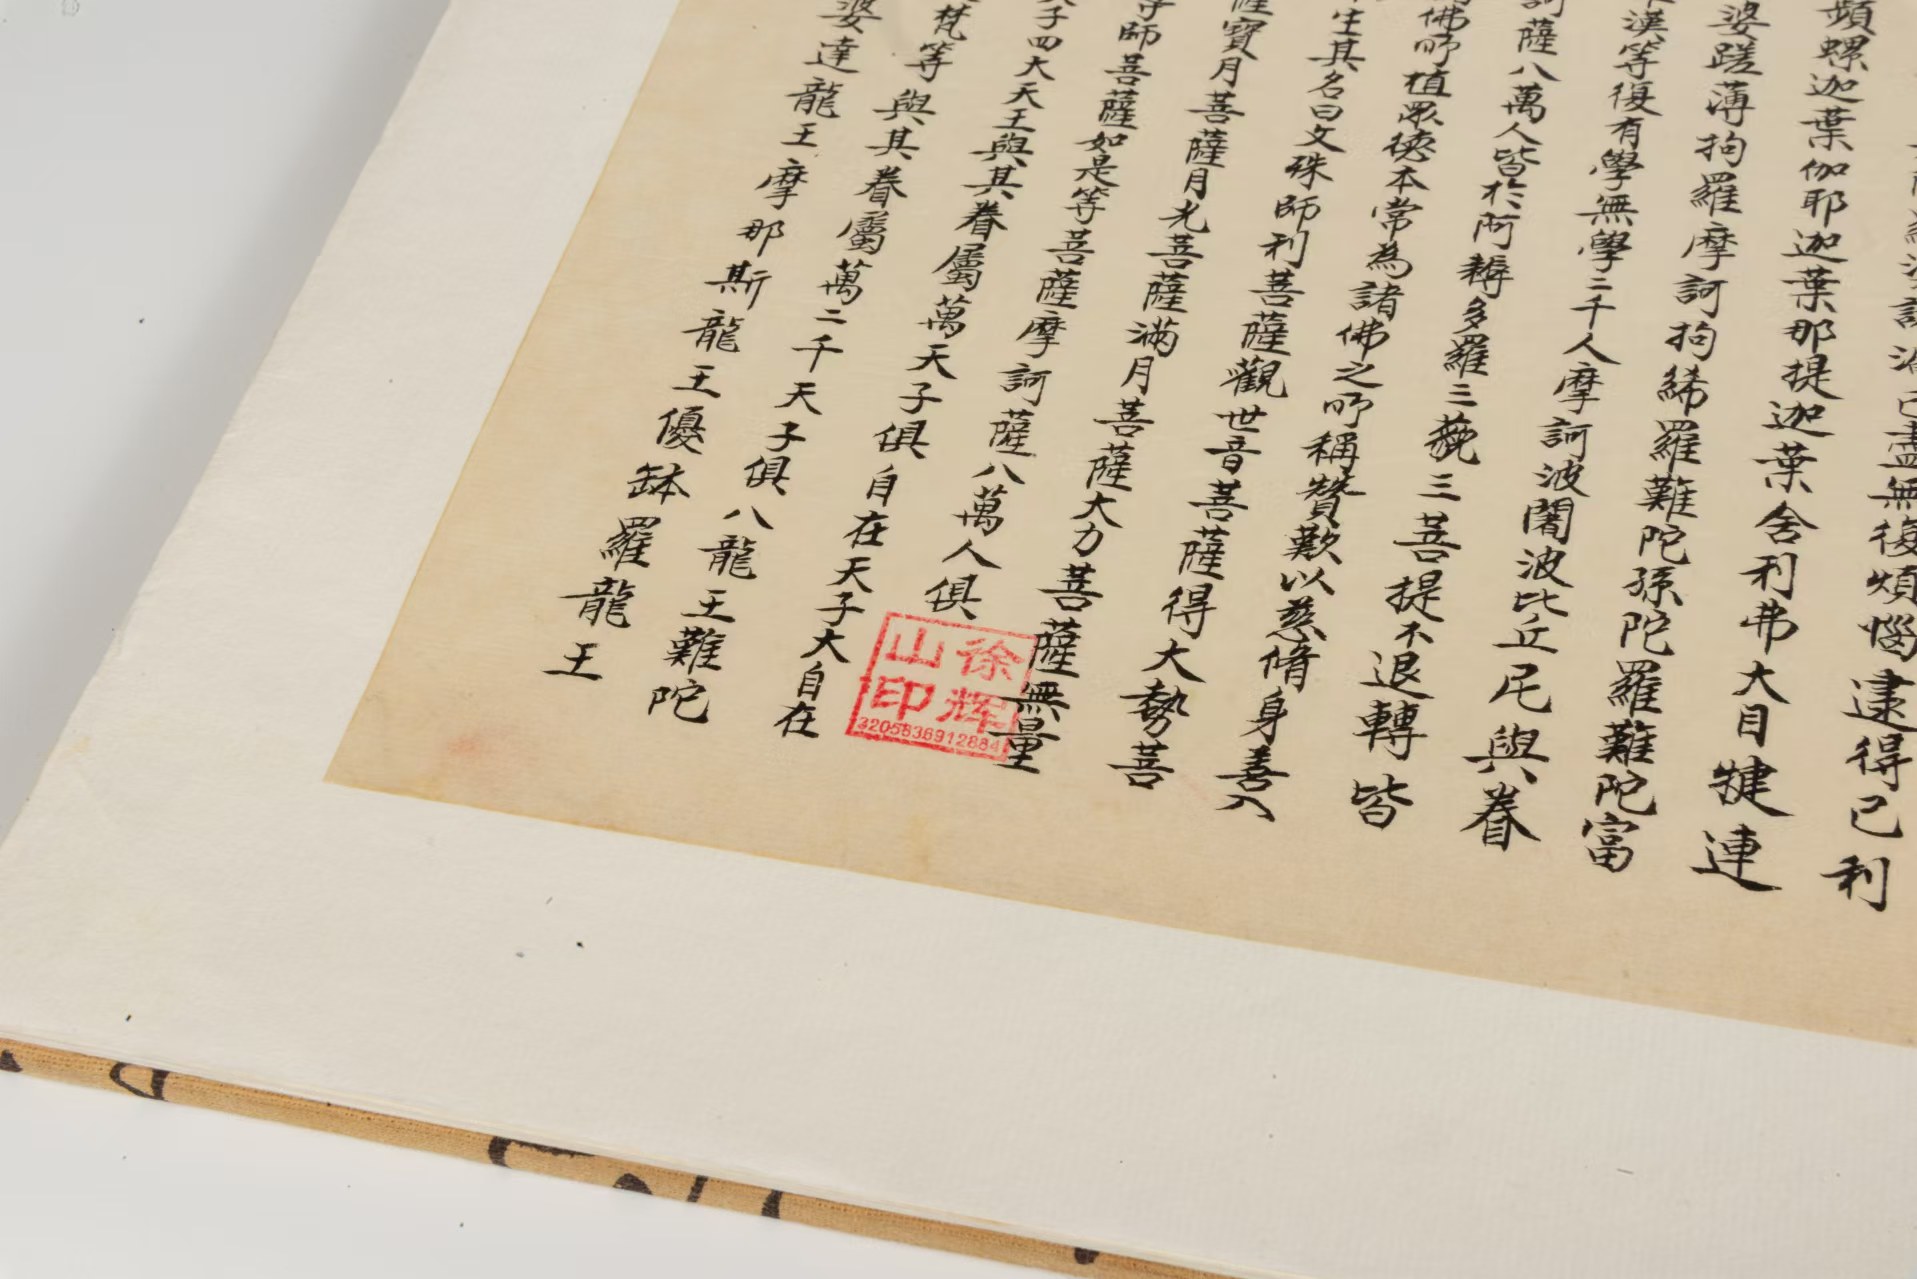 諸漏已盡無復煩惱逮得已利
頻螺迦葉伽耶迦葉那提迦葉舍利弗大目犍連
婆蹉薄拘羅摩訶拘絺羅難陀孫陀羅難陀富
羅漢等復有學無學二千人摩訶波闍波比丘尼與眷
訶薩八萬人皆於阿耨多羅三藐三菩提不退轉皆
佛所植眾德本常為諸佛之所稱讚歎以慈脩身善入
生其名曰文殊師利菩薩觀世音菩薩得大勢菩
薩寶月菩薩月光菩薩滿月菩薩大力菩薩無量
師菩薩如是等菩薩摩訶薩八萬人俱
子四大天王與其眷屬萬天子俱自在天子大自在
梵等與其眷屬萬二千天子俱八龍王難陀
婆達龍王摩那斯龍王優缽羅龍王
徐辉
山印
3205836912884